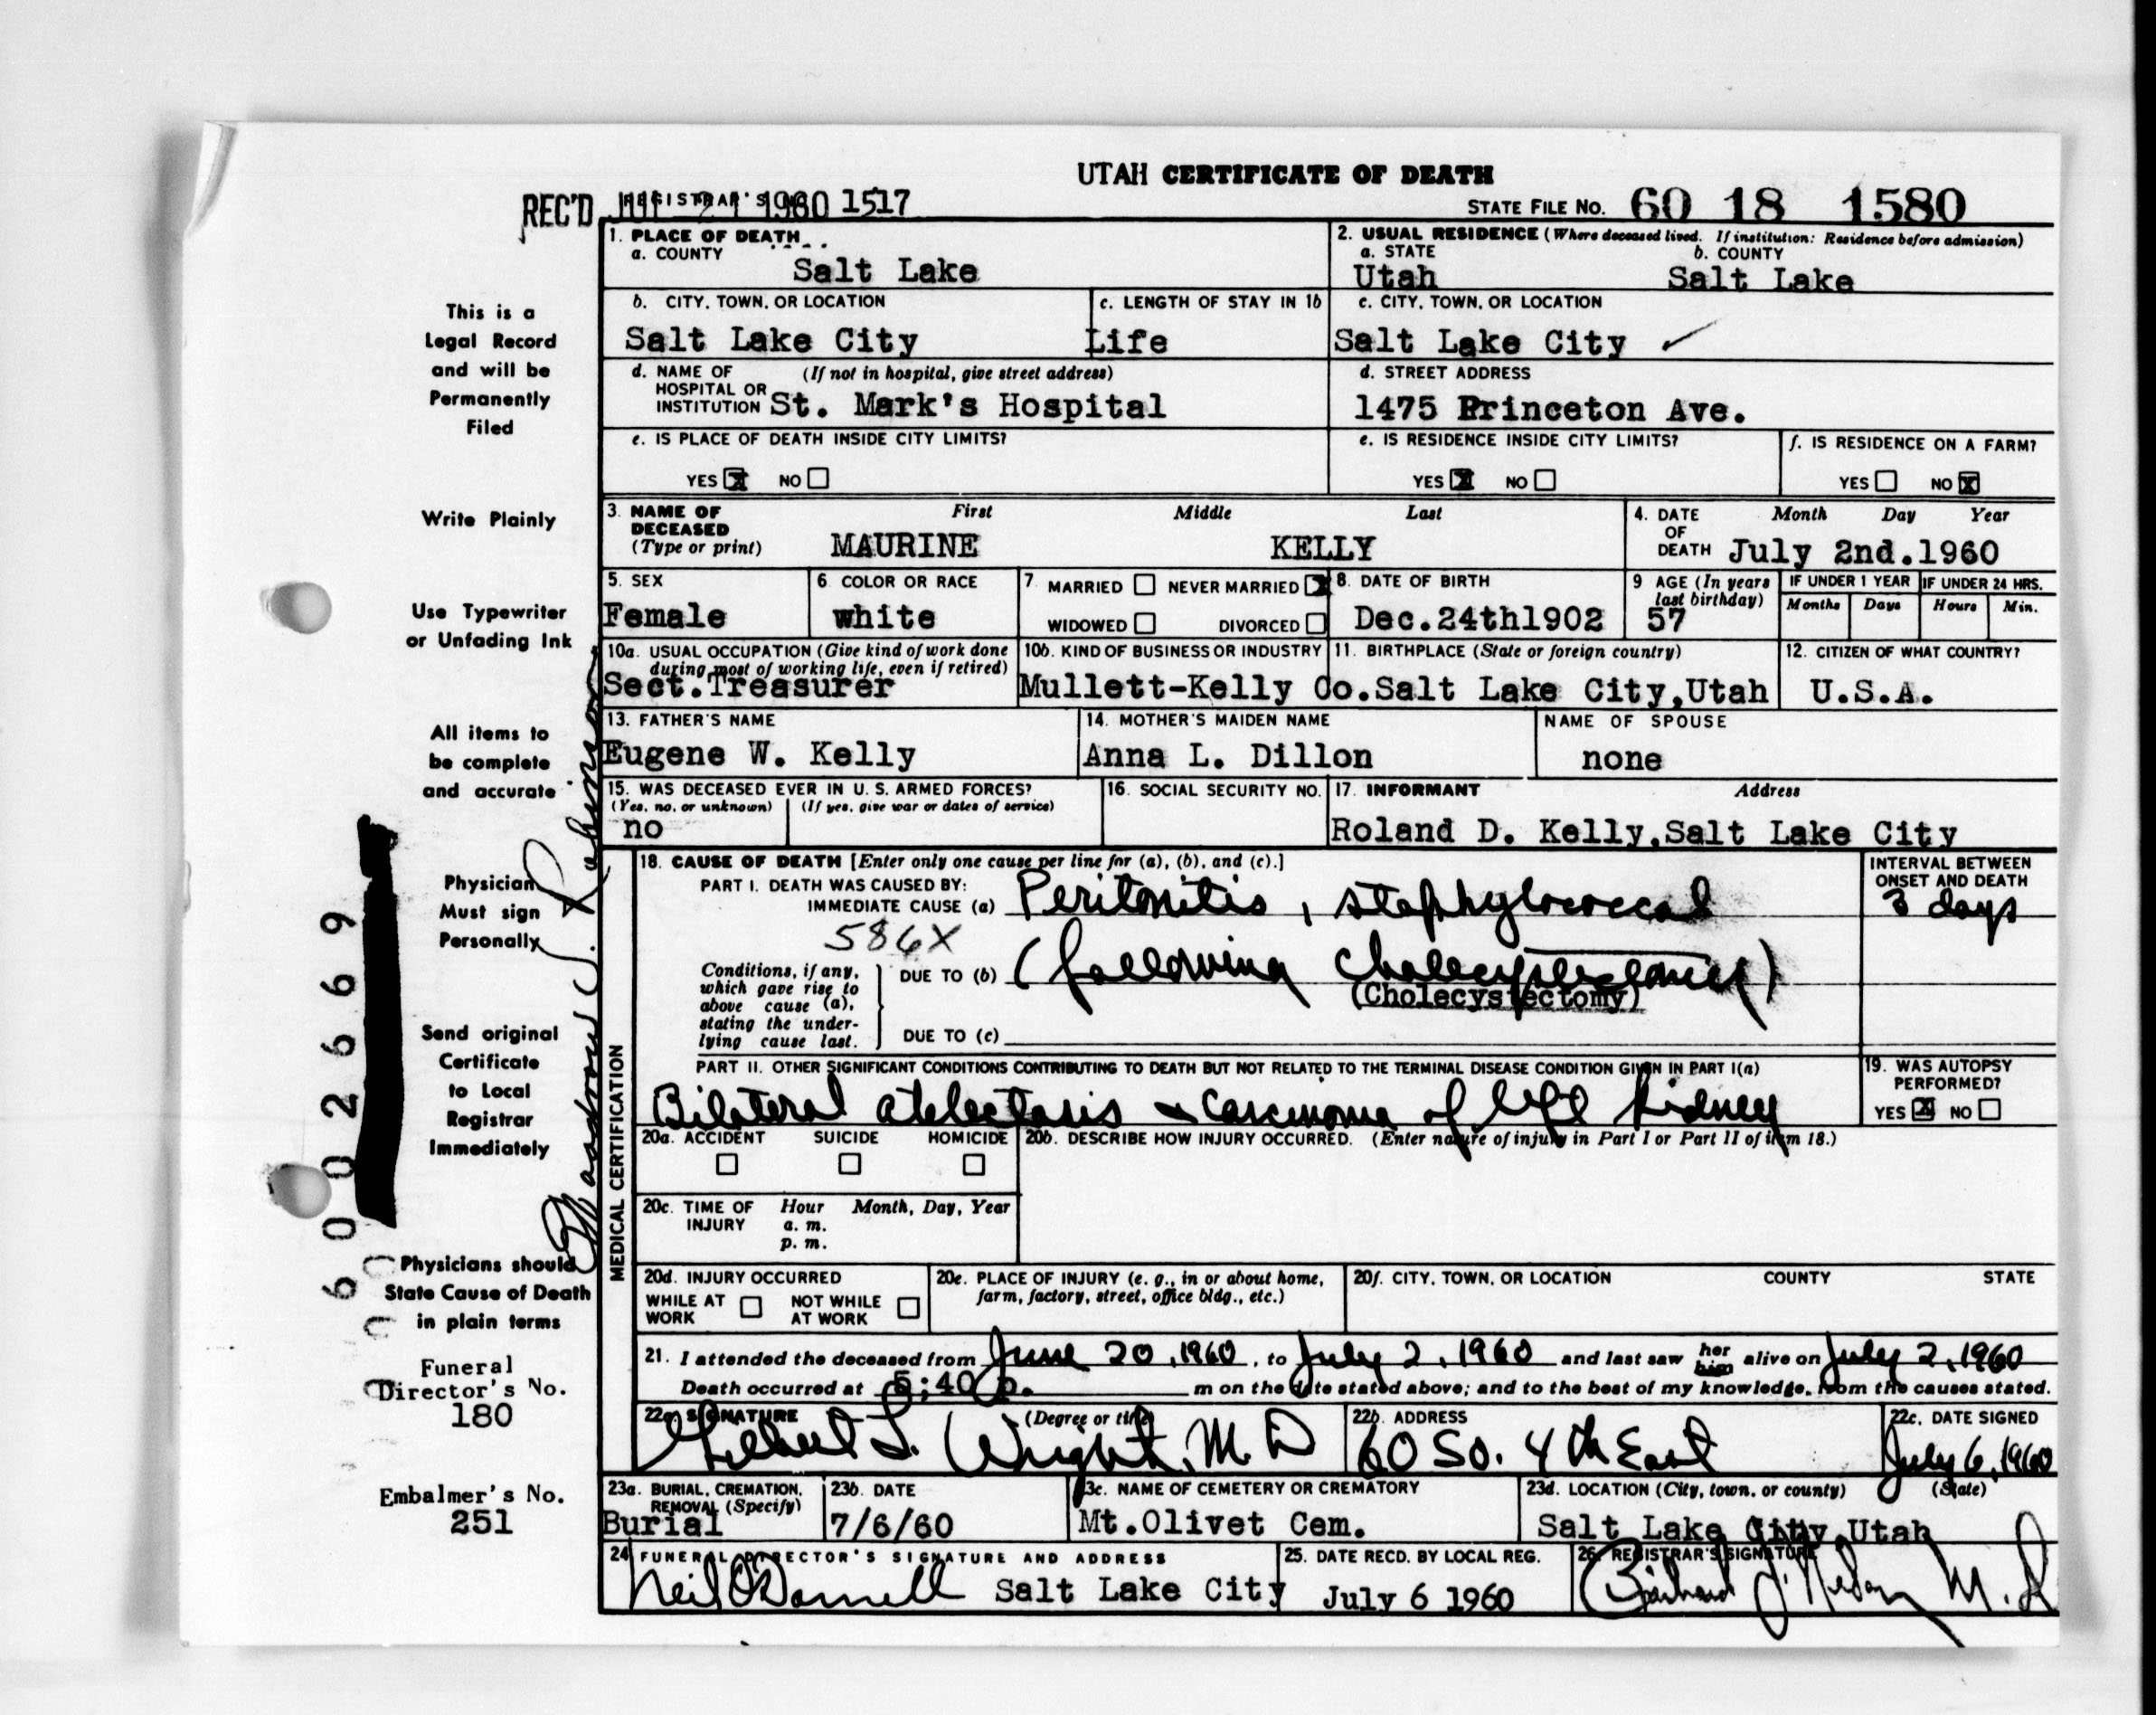 UTAH CERTIFICATE OF DEATH
REC'D JUL 21 1960 REGISTRAR'S NO. 1517
STATE FILE NO. 60 18 1580
1. PLACE OF DEATH
a. COUNTY
Salt Lake
2. USUAL RESIDENCE (Where deceased lived. If institution: Residence before admission)
a. STATE b. COUNTY
Utah Salt Lake
b. CITY, TOWN, OR LOCATION
Salt Lake City
c. LENGTH OF STAY IN 1b
Life
c. CITY, TOWN, OR LOCATION
Salt Lake City ✓
d. NAME OF (If not in hospital, give street address)
HOSPITAL OR
INSTITUTION St. Mark's Hospital
d. STREET ADDRESS
1475 Princeton Ave.
e. IS PLACE OF DEATH INSIDE CITY LIMITS?
YES ☒ NO ☐
e. IS RESIDENCE INSIDE CITY LIMITS?
YES ☒ NO ☐
f. IS RESIDENCE ON A FARM?
YES ☐ NO ☒
3. NAME OF DECEASED (Type or print)
First Middle Last
MAURINE KELLY
4. DATE OF DEATH
Month Day Year
July 2nd.1960
5. SEX
Female
6. COLOR OR RACE
white
7. MARRIED ☐ NEVER MARRIED ☒
WIDOWED ☐ DIVORCED ☐
8. DATE OF BIRTH
Dec.24th1902
9 AGE (In years last birthday)
57
IF UNDER 1 YEAR
Months Days
IF UNDER 24 HRS.
Hours Min.
10a. USUAL OCCUPATION (Give kind of work done
during most of working life, even if retired)
Sect.Treasurer
10b. KIND OF BUSINESS OR INDUSTRY
Mullett-Kelly Co.
11. BIRTHPLACE (State or foreign country)
Salt Lake City,Utah
12. CITIZEN OF WHAT COUNTRY?
U.S.A.
13. FATHER'S NAME
Eugene W. Kelly
14. MOTHER'S MAIDEN NAME
Anna L. Dillon
NAME OF SPOUSE
none
15. WAS DECEASED EVER IN U. S. ARMED FORCES?
(Yes, no, or unknown) (If yes, give war or dates of service)
no
16. SOCIAL SECURITY NO.
17. INFORMANT Address
Roland D. Kelly,Salt Lake City
MEDICAL CERTIFICATION
18. CAUSE OF DEATH [Enter only one cause per line for (a), (b), and (c).]
PART I. DEATH WAS CAUSED BY:
IMMEDIATE CAUSE (a) Peritonitis, staphylococcal
INTERVAL BETWEEN ONSET AND DEATH
3 days
586X
Conditions, if any,
which gave rise to
above cause (a),
stating the under-
lying cause last.
DUE TO (b) (following cholecystectomy)
(Cholecystectomy)
DUE TO (c)
PART II. OTHER SIGNIFICANT CONDITIONS CONTRIBUTING TO DEATH BUT NOT RELATED TO THE TERMINAL DISEASE CONDITION GIVEN IN PART I(a)
Bilateral atelectasis & carcinoma of left kidney
19. WAS AUTOPSY PERFORMED?
YES ☒ NO ☐
20a. ACCIDENT SUICIDE HOMICIDE
☐ ☐ ☐
20b. DESCRIBE HOW INJURY OCCURRED. (Enter nature of injury in Part I or Part II of item 18.)
20c. TIME OF INJURY
Hour Month, Day, Year
a. m.
p. m.
20d. INJURY OCCURRED
WHILE AT WORK ☐ NOT WHILE AT WORK ☐
20e. PLACE OF INJURY (e. g., in or about home,
farm, factory, street, office bldg., etc.)
20f. CITY, TOWN, OR LOCATION COUNTY STATE
21. I attended the deceased from June 20, 1960, to July 2, 1960 and last saw her him alive on July 2, 1960
Death occurred at 5:40 p. m on the date stated above; and to the best of my knowledge, from the causes stated.
22a. SIGNATURE (Degree or title)
Gilbert L. Wright, M.D
22b. ADDRESS
60 So. 4th East
22c. DATE SIGNED
July 6, 1960
23a. BURIAL, CREMATION, REMOVAL (Specify)
Burial
23b. DATE
7/6/60
23c. NAME OF CEMETERY OR CREMATORY
Mt.Olivet Cem.
23d. LOCATION (City, town, or county) (State)
Salt Lake City,Utah
24 FUNERAL DIRECTOR'S SIGNATURE AND ADDRESS
Neil O'Donnell Salt Lake City
25. DATE RECD. BY LOCAL REG.
July 6 1960
26. REGISTRAR'S SIGNATURE
M.D
This is a
Legal Record
and will be
Permanently
Filed
Write Plainly
Use Typewriter
or Unfading Ink
All items to
be complete
and accurate
Physician
Must sign
Personally
Send original
Certificate
to Local
Registrar
Immediately
Physicians should
State Cause of Death
in plain terms
Funeral
Director's No.
180
Embalmer's No.
251
6 0 0 2 6 6 9